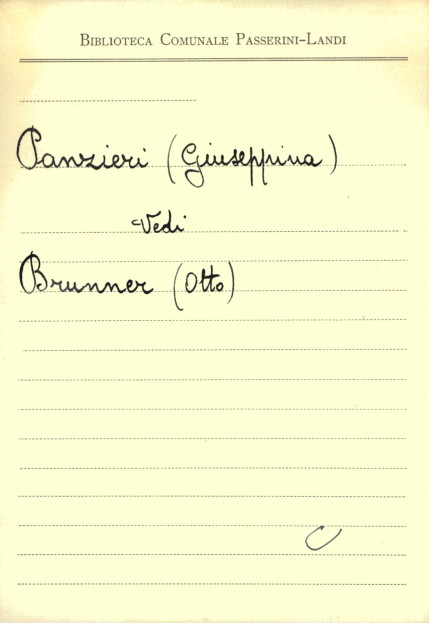 Biblioteca Comunale Passerini-Landi
Panzieri (Giuseppina)
Vedi
Brunner (Otto)